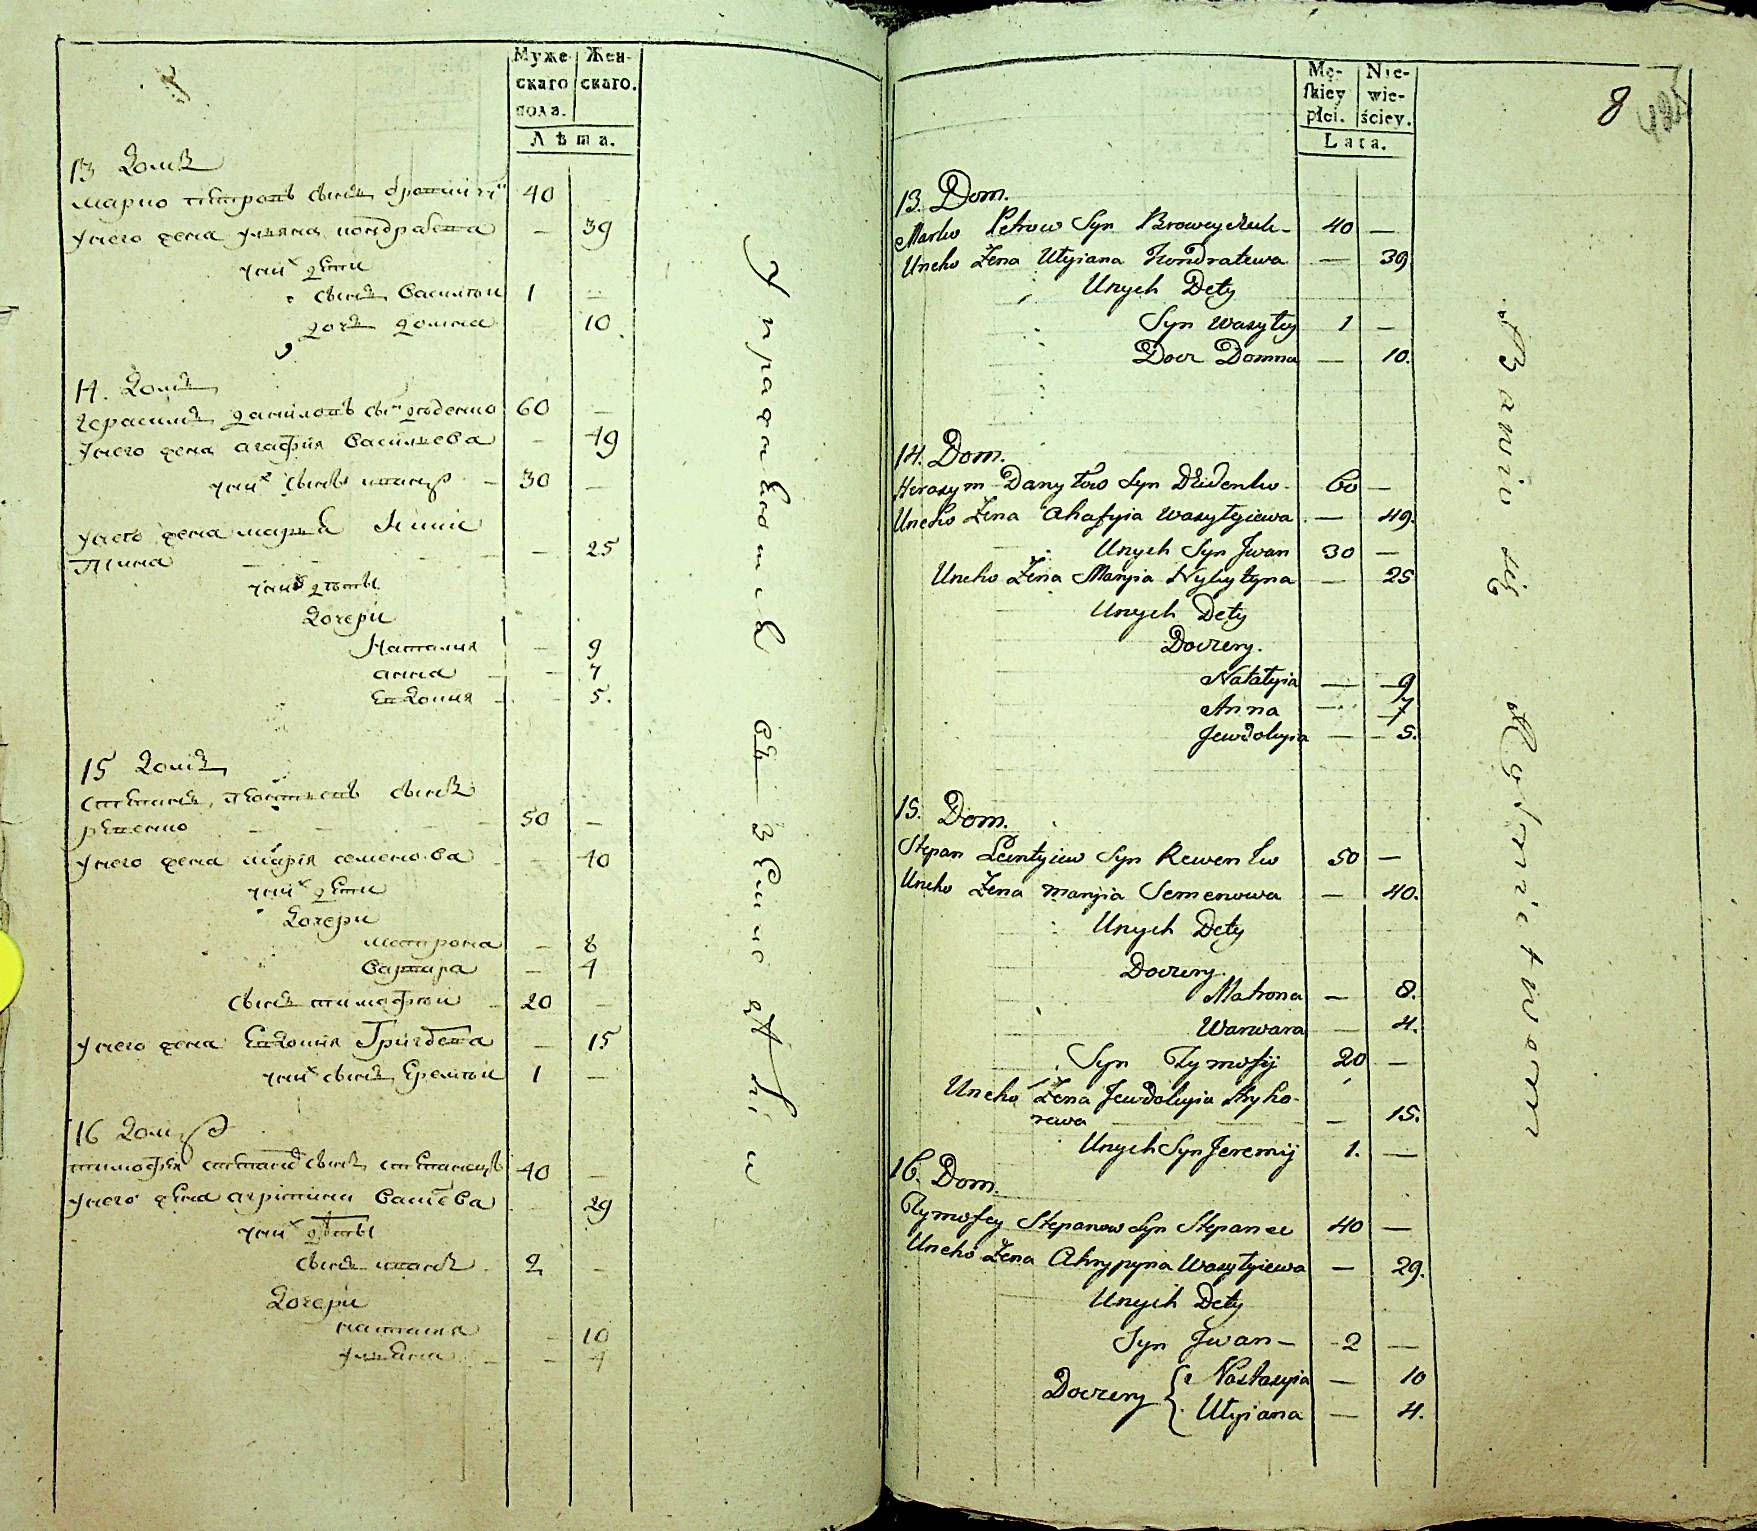 Муже-
скаго
пола.
Жен-
скаго.
Лѣта.
13 Домъ
Марко Петровъ сынъ 40
У него жена Ульяна Кондратева — 39
У них дети
сынъ Василей 1 —
дочь Домна 10
14. Домъ
Герасимъ Даниловъ сынъ 60 —
У него жена Агафия Васильева — 49
У них сынъ Иванъ — 30 —
У него жена Маръя
— 25
У них дѣты
Дочери
Наталия — 9
Анна — 7
Евдокия — 5.
15 Домъ
Степанъ Леонтьевъ сынъ
Ревенко 50 —
У него жена Мария Семенова — 40
У них дети
Дочери
Матрона — 8
Варвара — 4
сынъ Тимофей 20 —
У него жена Евдокия — 15
У них сынъ Еремей 1 —
16 Домъ
Тимофей Степановъ сынъ Степанецъ 40 —
У него жена Агрипина 29
У них дѣты
сынъ Иванъ 2 —
Дочери
10
Ульяна — 4
Упражняется въ земледѣлии
8
Mę-
skiey
płci.
Nie-
wie-
ściey.
Lata.
13. Dom.
Marko Petrow Syn 40 —
Uneho Żena Ulyiana Kondratewa — 39
Unych Dety
Syn Wasyley 1 —
Docz Domna — 10.
14. Dom.
Herasym Danyłow Syn Dżidenko 60 —
Uneho Żena Ahafyia Wasylyiewa — 49.
Unych Syn Jwan 30 —
Uneho Żena Maryia Nykytyna — 25
Unych Dety
Doczery.
Natalyia — 9
Anna — 7
Jewdokyia — 5.
15. Dom.
Stepan Leontyiew Syn Rewenko 50 —
Uneho Żena Maryia Semenowa — 40.
Unych Dety
Doczery.
Matrona — 8.
Warwara — 4.
Syn Tymofij 20 —
Uneho Żena Jewdokyia Hryho-
rewa — 15.
Unych Syn Jeremij 1. —
16. Dom.
Tymofey Stepanow Syn Stepanec 40 —
Uneho Żena Ahrypyna Wasylyiewa — 29.
Unych Dety
Syn Jwan — 2 —
Doczery { Nastasyia — 10
Ulyiana — 4.
Bawią się Rolnictwem